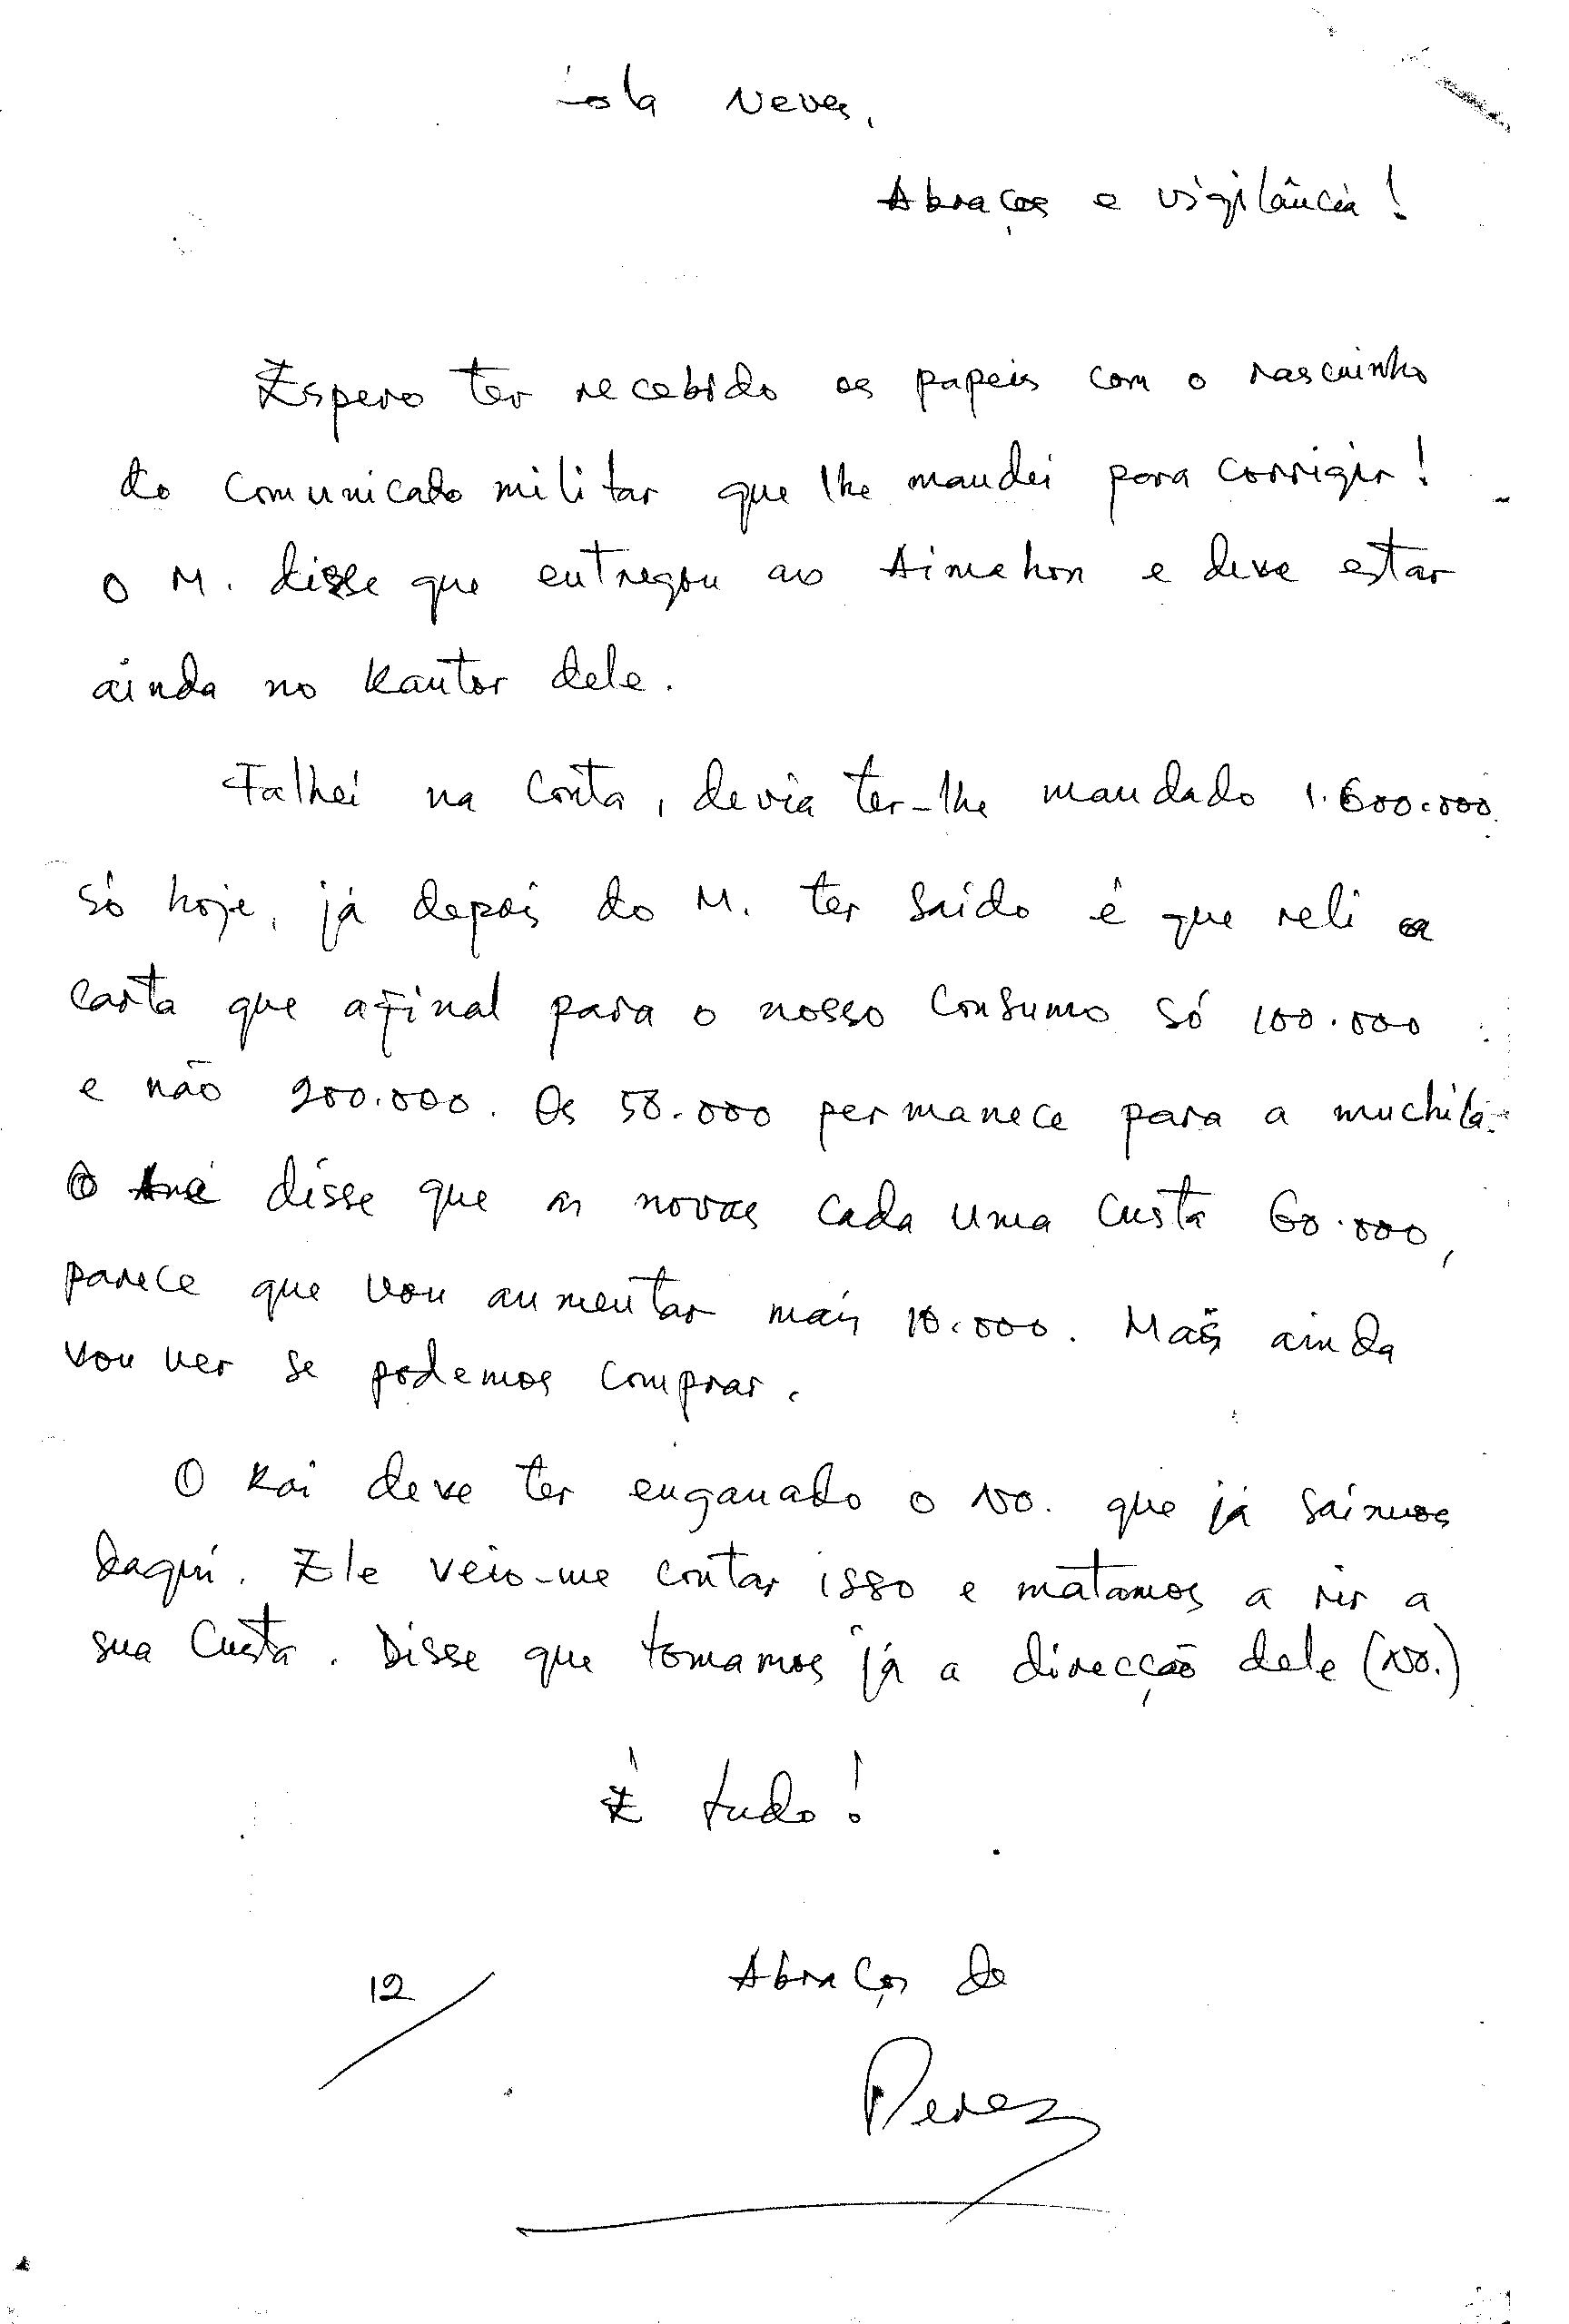 Olá Neves,
Abraços e vigilância!
Espero ter recebido os papeis com o rascuinho
do comunicado militar que lhe mandei para corrigir!
O M. disse que entregou ao Aimahon e deve estar
ainda no Kantor dele.
Falhei na conta, devia ter-lhe mandado 1.600.000
só hoje, já depois do M. ter saído é que reli a
carta que afinal para o nosso consumo só 100.000
e não 200.000. Os 50.000 permanece para a muchila.
O disse que as novas cada uma custa 60.000,
parece que vou aumentar mais 10.000. Mas ainda
vou ver se podemos comprar.
O Kai deve ter enganado o No. que já saímos
daqui. Ele veio-me contar isso e matamos a rir a
sua custa. Disse que tomamos já a direcção dele (No.)
É tudo!
Abraços de
12/
Perez